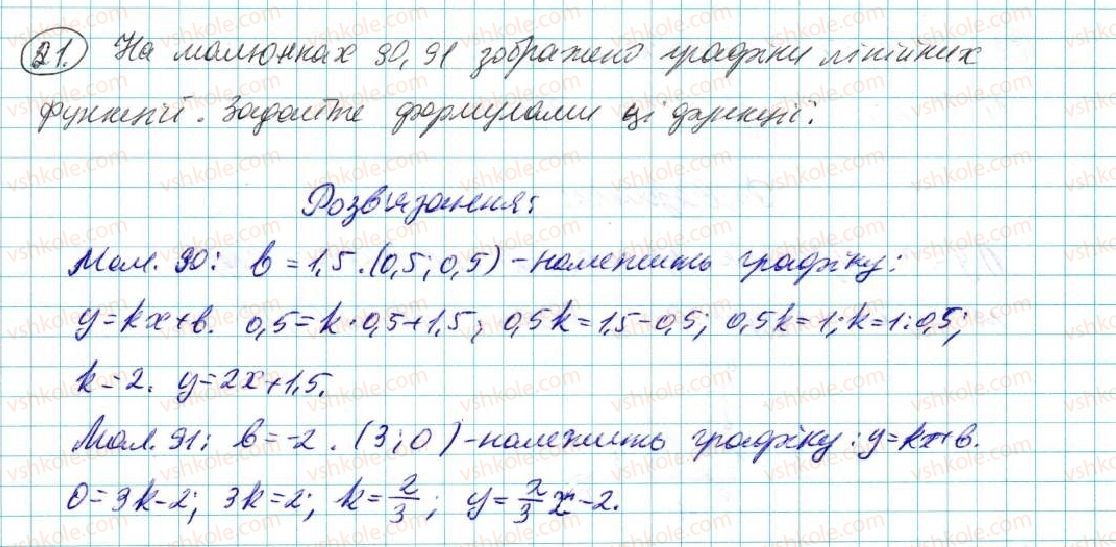 21. На малюнках 90, 91 зображено графіки лінійних
функцій. Задайте формулами ці функції.
Розв'язання:
Мал. 90: b = 1,5. (0,5; 0,5) - належить графіку:
y = kx + b. 0,5 = k · 0,5 + 1,5; 0,5k = 1,5 - 0,5; 0,5k = 1; k = 1 : 0,5;
k = 2. y = 2x + 1,5.
Мал. 91: b = -2. (3; 0) - належить графіку: y = kx + b.
0 = 3k - 2; 3k = 2; k = 2/3; y = 2/3 x - 2.